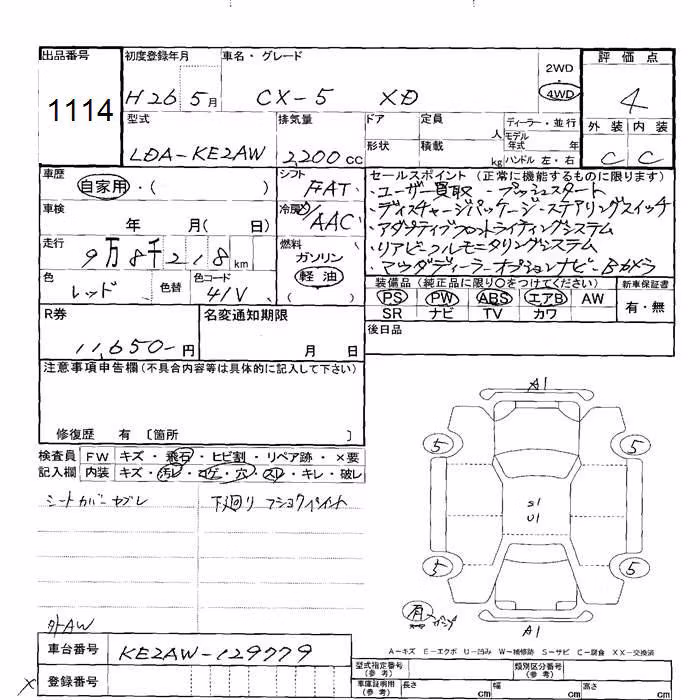 出品番号
1114
初度登録年月
H26 5月
車名・グレード
CX-5 XD
2WD
4WD
評価点
4
外装 内装
C C
型式
LDA-KE2AW
排気量
2,200cc
ドア
定員
人
形状
積載
kg
ディーラー・並行
モデル
年式 年
ハンドル 左・右
車歴
自家用・( )
シフト
FAT
車検
年 月( 日)
冷房
AAC
走行
9万8千218km
燃料
ガソリン
軽油
( )
色
レッド
色替
色コード
41V
セールスポイント (正常に機能するものに限ります)
・ユーザー買取 ・プッシュスタート
・ディスチャージパッケージ・ステアリングスイッチ
・アダプティブフロントライティングシステム
・リアビークルモニタリングシステム
・マツダディーラーオプションナビ・Bカメラ
装備品(純正品に限り○をつけてください)
PS PW ABS エアB AW
SR ナビ TV カワ
新車保証書
有・無
R券
11,650-円
名変通知期限
月 日
後日品
注意事項申告欄(不具合内容等は具体的に記入して下さい)
修復歴 有 〔箇所 〕
検査員
記入欄
FW キズ・飛石・ヒビ割・リペア跡・×要
内装 キズ・汚レ・コゲ・穴・スレ・キレ・破レ
シートカバーヤブレ
下廻り
外AW
A1
5
5
S1
U1
5
5
有
A1
A-キズ E-エクボ U-凹み W-補修跡 S-サビ C-腐食 XX-交換済
車台番号
KE2AW-129779
×
登録番号
型式指定番号
(参考)
類別区分番号
(参考)
車庫証明用
(参考)
長さ cm
幅 cm
高さ cm